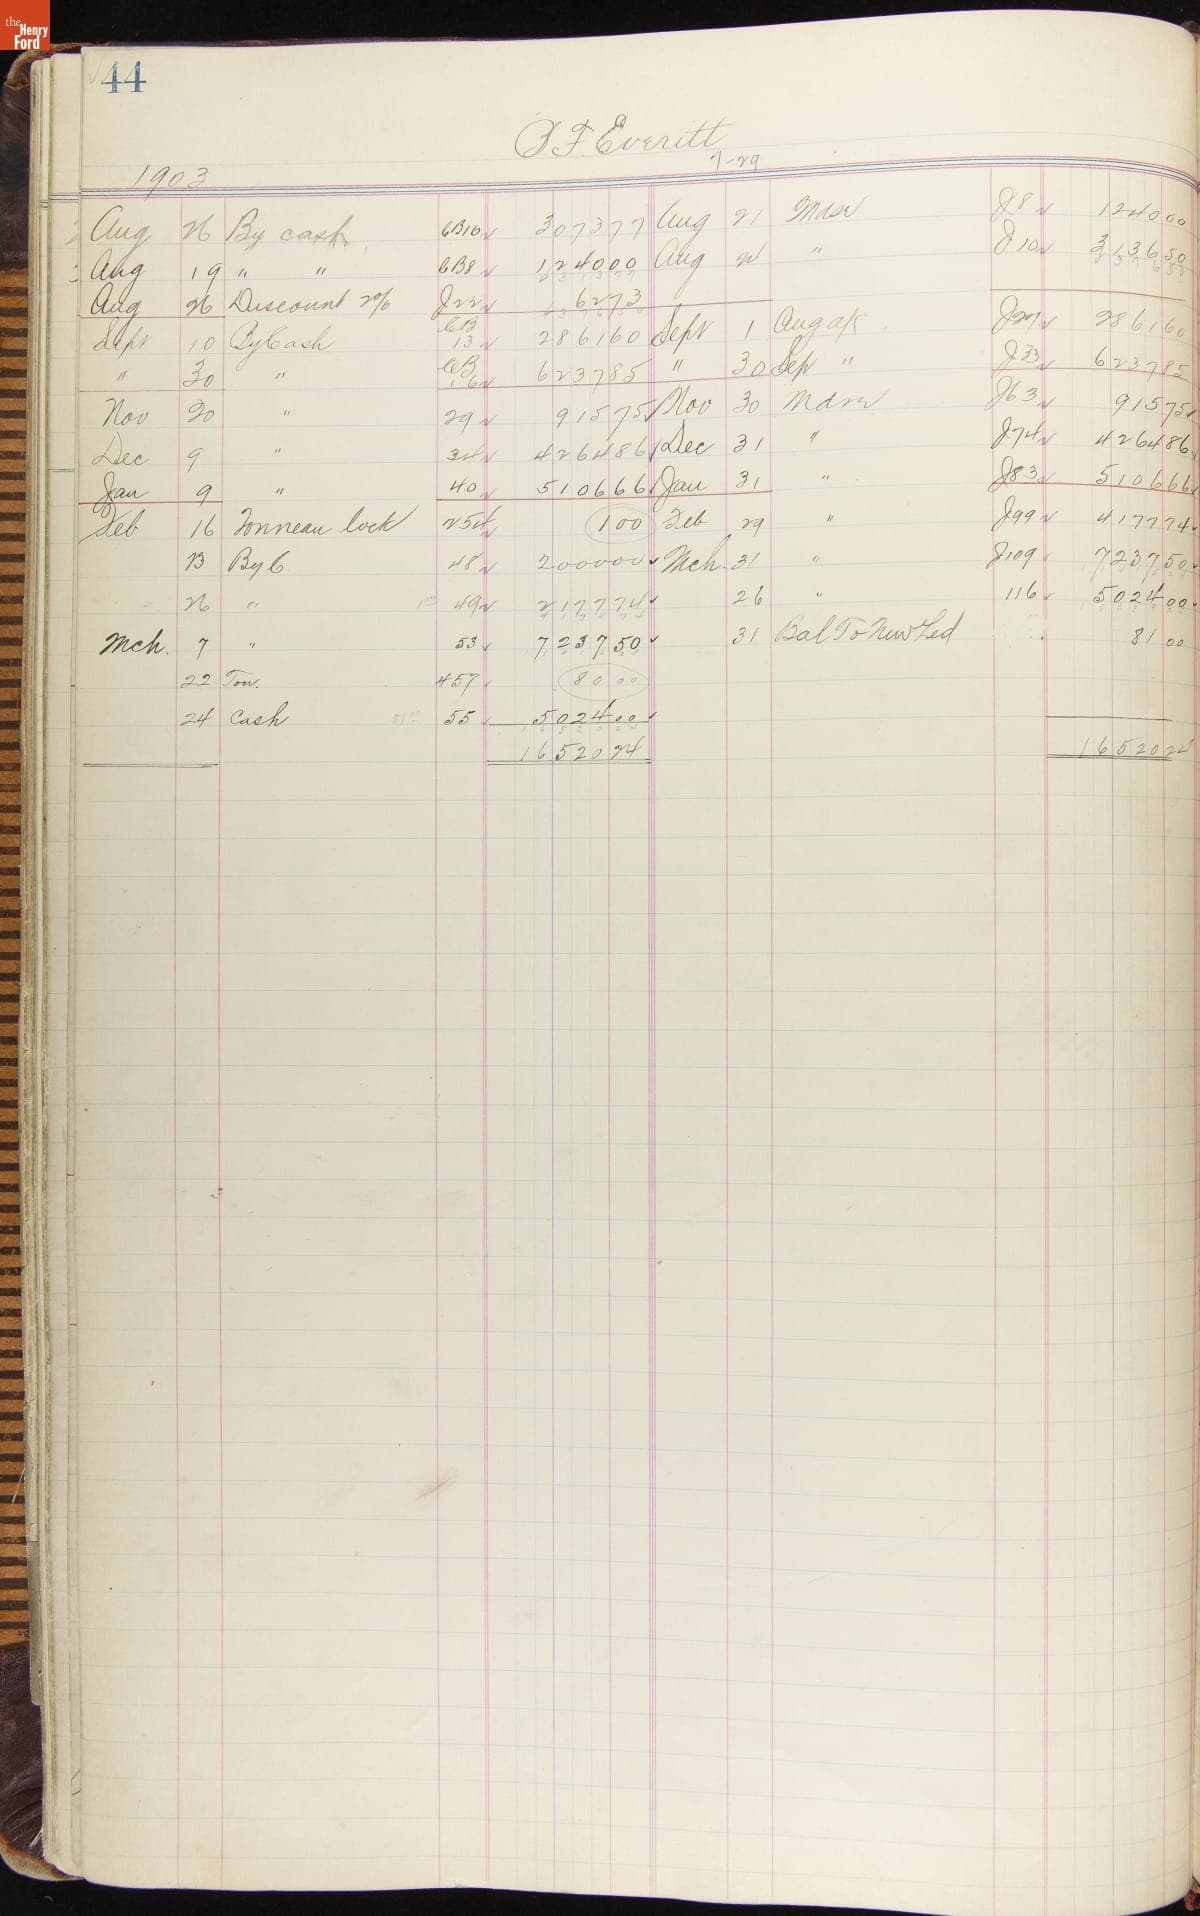 the Henry Ford
44
B.F. Everitt
7-29
1903
Aug 26 By cash CB10 3073 77 Aug 21 Mdse J8 1240 00
Aug 19 " " CB8 1240 00 Aug 21 " J10 3136 50
Aug 26 Discount 2% J22 62 73
Sept 10 By Cash CB 13 2861 60 Sept 1 Aug a/c J27 2861 60
" 30 " CB 16 6237 85 " 30 Sep " J33 6237 85
Nov 20 " 29 915 75 Nov 30 Mdse J63 915 75
Dec 9 " 34 4264 86 Dec 31 " J74 4264 86
Jan 9 " 40 5106 66 Jan 31 " J83 5106 66
Feb 16 Tonneau lock 254 1 00 Feb 29 " J99 4177 74
13 By C 48 2000 00 Mch. 31 " J109 7237 50
26 " 49 2177 74 26 " 116 5024 00
Mch. 7 " 53 7237 50 31 Bal To New Led 81 00
22 Ton. 457 80 00
24 Cash 55 5024 00
16520 24 16520 24